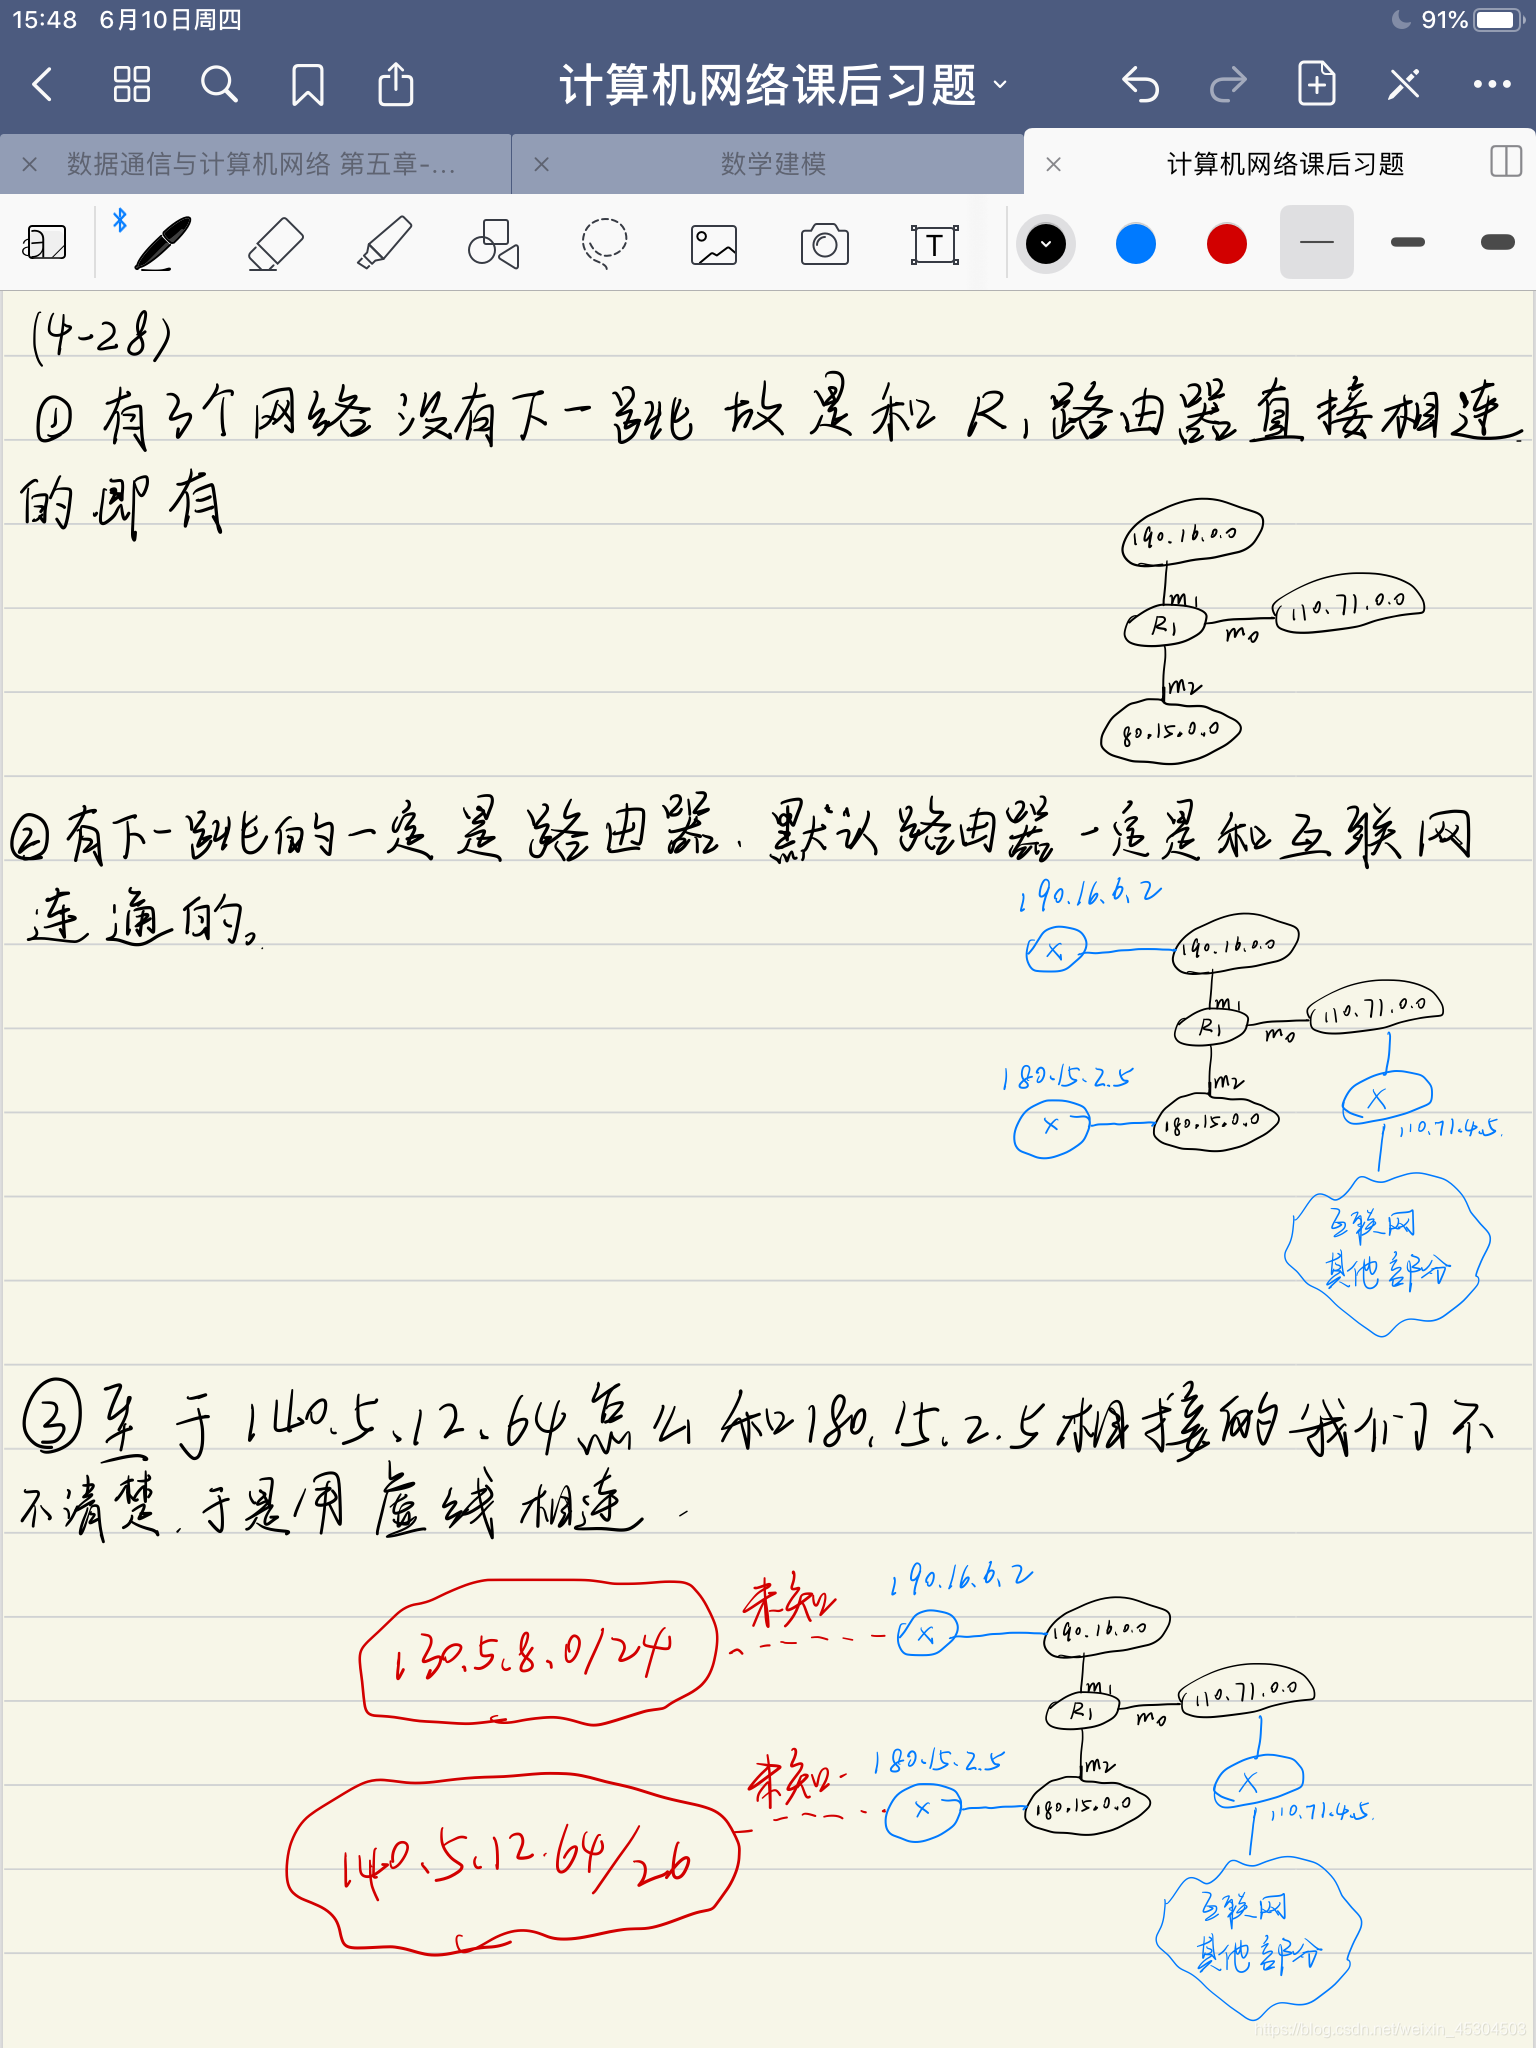 15:48 6月10日周四
91%
计算机网络课后习题
数据通信与计算机网络 第五章-...
数学建模
计算机网络课后习题
T
(4-28)
① 有3个网络没有下一跳故是和R1路由器直接相连
的.即有
190.16.0.0
m1
110.71.0.0
R1
m0
m2
80.15.0.0
②有下一跳的一定是路由器.默认路由器一定是和互联网
连通的。
190.16.6.2
X
190.16.0.0
m1
110.71.0.0
R1
m0
180.15.2.5
m2
X
180.15.0.0
X
110.71.4.5.
互联网
其他部分
③至于140.5.12.64怎么和180.15.2.5相接的我们不
不清楚.于是用虚线相连.
未知
190.16.6.2
130.5.8.0/24
X
190.16.0.0
m1
110.71.0.0
R1
m0
未知
180.15.2.5
m2
X
180.15.0.0
X
110.71.4.5.
140.5.12.64/26
互联网
其他部分
https://blog.csdn.net/weixin_45304503